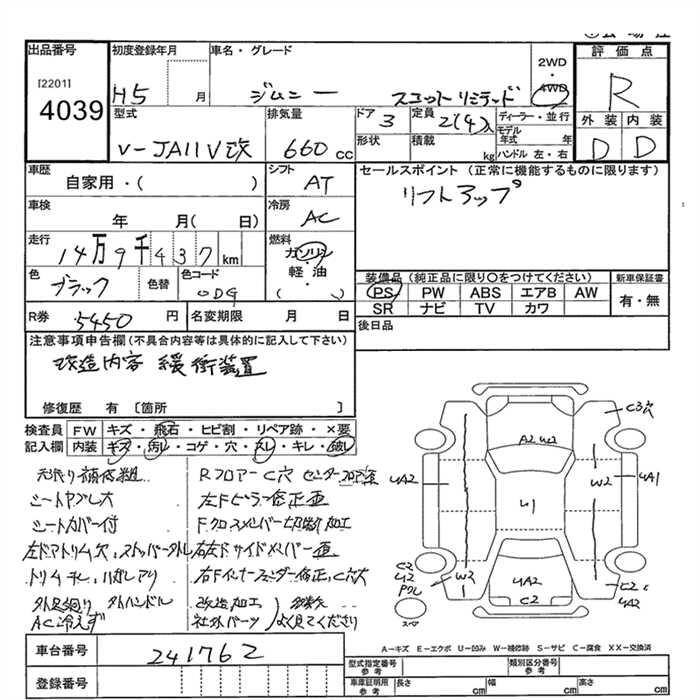 出品番号
[2201]
4039
初度登録年月
H5 月
車名・グレード
ジムニー スコットリミテッド
2WD
・
4WD
評価点
R
外装 内装
D D
型式
V-JA11V改
排気量
660 cc
ドア
3
定員
2(4)人
形状
積載
kg
ディーラー・並行
モデル
年式 年
ハンドル 左・右
車歴
自家用・( )
シフト
AT
セールスポイント (正常に機能するものに限ります)
リフトアップ
車検
年 月( 日)
冷房
AC
走行
14万9千437 km
燃料
ガソリン
・軽油・
( )
色
ブラック
色替
色コード
装備品 (純正品に限り○をつけてください)
PS PW ABS エアB AW
SR ナビ TV カワ
新車保証書
有・無
R券 5450 円
名変期限 月 日
後日品
注意事項申告欄(不具合内容等は具体的に記入して下さい)
改造内容 緩衝装置
修復歴 有 〔箇所 〕
検査員
記入欄
FW キズ・飛石・ヒビ割・リペア跡・×要
内装 キズ・汚レ・コゲ・穴・スレ・キレ・破レ
シートヤブレ大
シートカバー付
左ドアトリム穴、ストッパー外レ
外足廻り 外ハンドル
AC冷えず
RフロアーC穴
左Fピラー修正歪
Fクロスメンバー切断加工
右左Fサイドメンバー歪
右Fインナーフェンダー修正、C穴大
改造加工
社外パーツ
多数
よく見てください
C3穴
A2 W2
UA2
W2
UA1
U1
C2
U2
W2
UA2
C2
C2
UA2
スペア
A-キズ E-エクボ U-凹み W-補修跡 S-サビ C-腐食 XX-交換済
車台番号
241762
登録番号
型式指定番号
参考
類別区分番号
参考
車庫証明用
参考
長さ cm
幅 cm
高さ cm